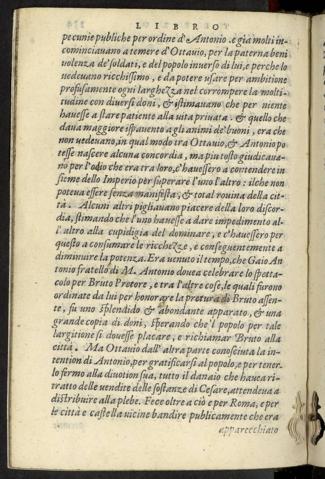 LIBRO
pecunie publiche per ordine d'Antonio. e già molti in
cominciavano a temere d'Ottavio, per la paterna beni
volenza de' soldati, e del popolo inverso di lui, e perche lo
vedevano ricchissimo, e da potere usare per ambitione
profusamente ogni larghezza nel corrompere la molti-
tudine con diversi doni, & istimavano che per niente
havesse a stare patiente alla vita privata. & quello che
dava maggiore ispavento agli animi de' buoni, era che
non vedevano, in qual modo tra Ottavio, & Antonio po
tesse nascere alcuna concordia, ma piu tosto giudicava-
no per l'odio che era tra loro, c'havessero a contendere in
sieme dello Imperio per superare l'uno l'altro: ilche non
poteva essere senza manifesta, & total rovina della cit-
tà. Alcuni altri pigliavano piacere della loro discor-
dia, stimando che l'uno havesse a dare impedimento al-
l'altro alla cupidigia del dominare, e c'havessero per
questo a consumare le ricchezze, e conseguentemente a
diminuire la potenza. Era venuto il tempo, che Gaio An
tonio fratello di M. Antonio doveva celebrare lo spetta-
colo per Bruto Pretore, e tra l'altre cose, le quali furono
ordinate da lui per honorare la pretura di Bruto assen-
te, fu uno splendido & abondante apparato, & una
grande copia di doni, sperando che'l popolo per tale
largitione si dovesse placare, e richiamar Bruto alla
città. Ma Ottavio dall'altra parte conosciuta la in-
tention di Antonio, per gratificarsi al popolo, e per tener-
lo fermo alla divotion sua, tutto il danaio che havea ri-
tratto delle vendite delle sostanze di Cesare, attendeva a
distribuire alla plebe. Fece oltre a ciò e per Roma, e per
le città e castella vicine bandire publicamente che era
apparecchiato